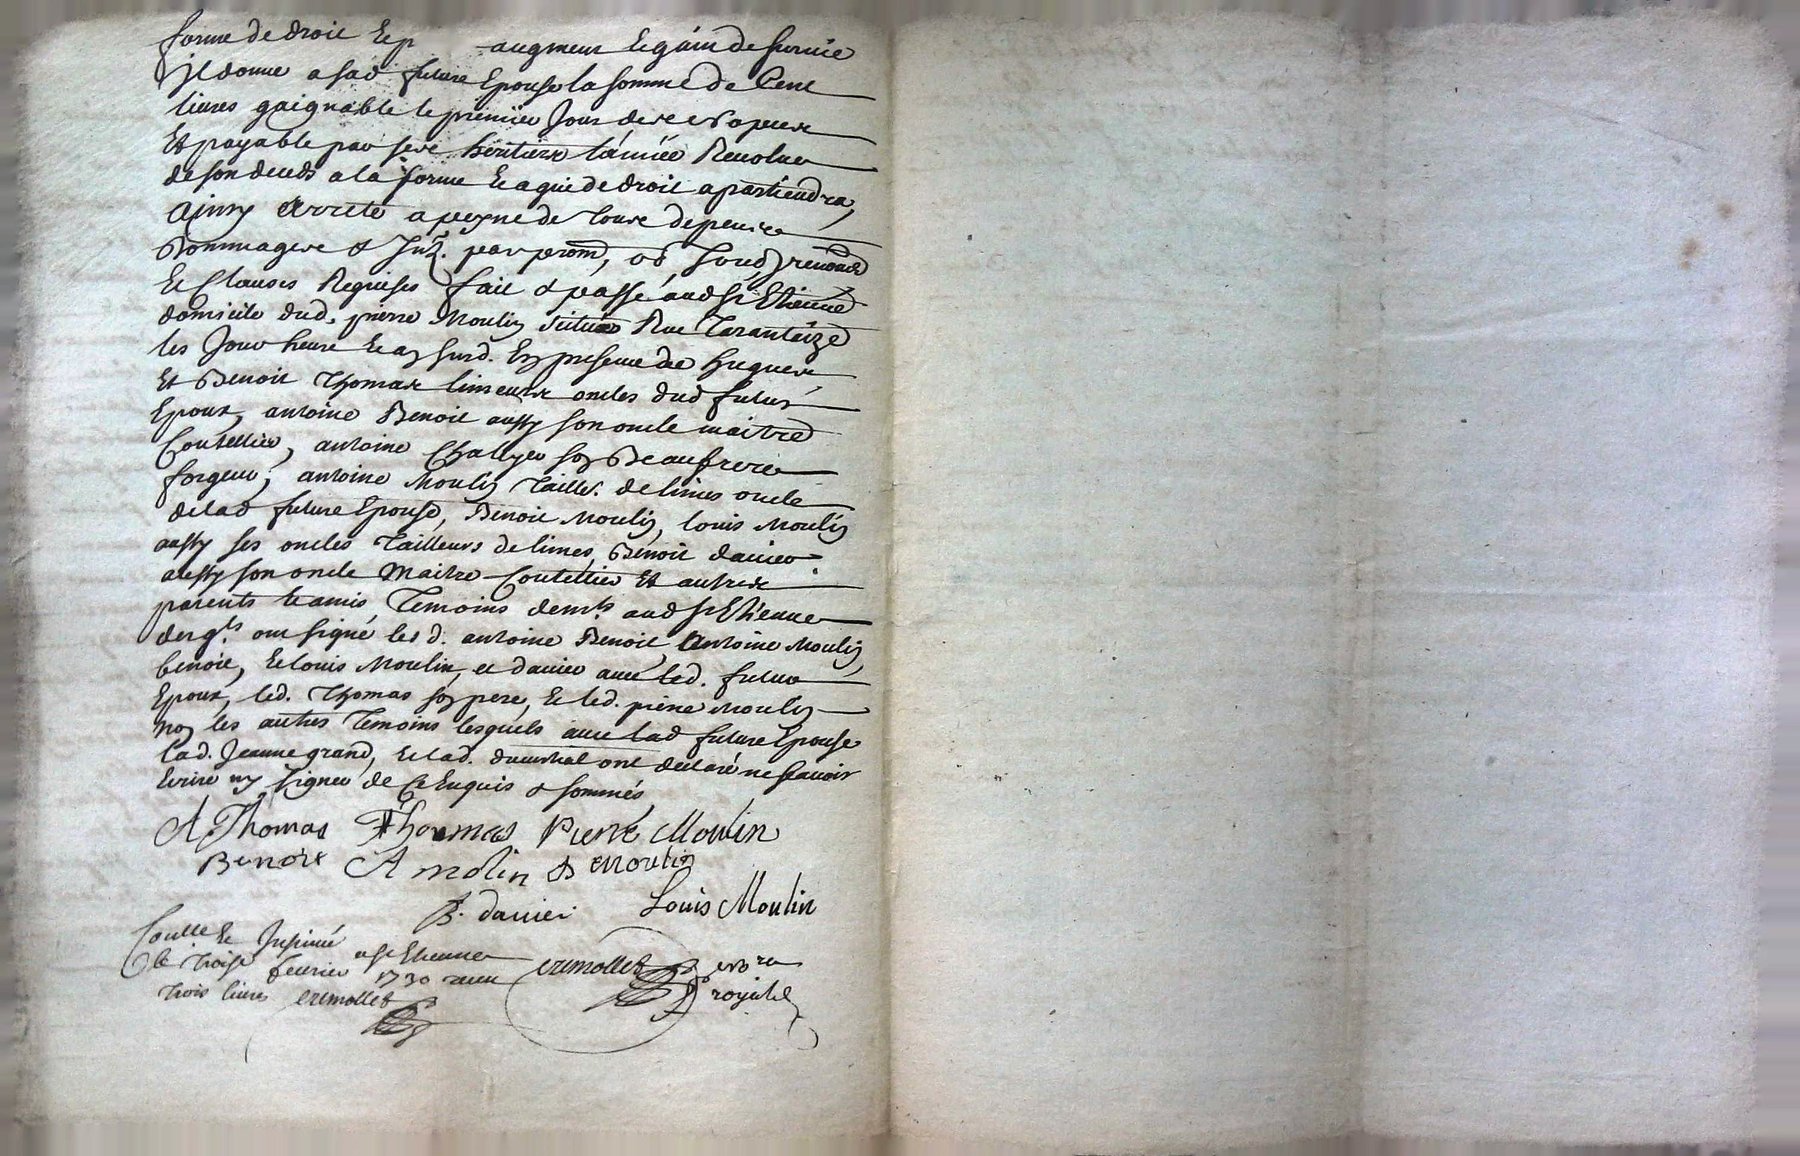 forme de droit Et p augment Et gain de survie
Il donne a lad future Epouse la somme de Cent
livres gaignable le premier Jour de
Et payable par ses heritiers l'année Revolue
de son deceds a la forme Et a qui de droit apartiendra,
Ainsy arreté a peyne de tous depens
Dommages & Int. par prom, ob, soud, renonc
Et Clauses Requises fait & passé aud St Etienne
domicile dud. pierre Moulin scitué Rue Tarantaize
les Jour heure Et an susd. En presence de Hugues
Et Benoit Thomas limeurs oncles dud futur
Epoux, antoine Benoit aussy son oncle maitre
Coutellier, antoine Chalyer son Beaufrere
forgeur, antoine Moulin Taillr. de limes oncle
de lad future Epouse, Benoit Moulin, louis Moulin
aussy ses oncles Tailleurs de limes, Benoit davier
aussy son oncle Maitre Coutellier Et autres
parents Et amis Temoins demts aud St Etienne
desqls ont signé les d. antoine Benoit, Antoine Moulin,
benoit, Et louis Moulin, et davier avec led. futur
Epoux, led. Thomas son pere, Et led. pierre Moulin
non les autres Temoins lesquels avec lad future Epouse
lad. Jeanne grand, Et lad. ont declaré ne scavoir
Ecrire ny signer de Ce Enquis & sommés
A Thomas Thoumas Pierre Moulin
Benoit A molin B Moulin
B. davier Louis Moulin
Contlé Et Insinué a St Etienne
le troise fevrier 1730 receu
trois livres
royal